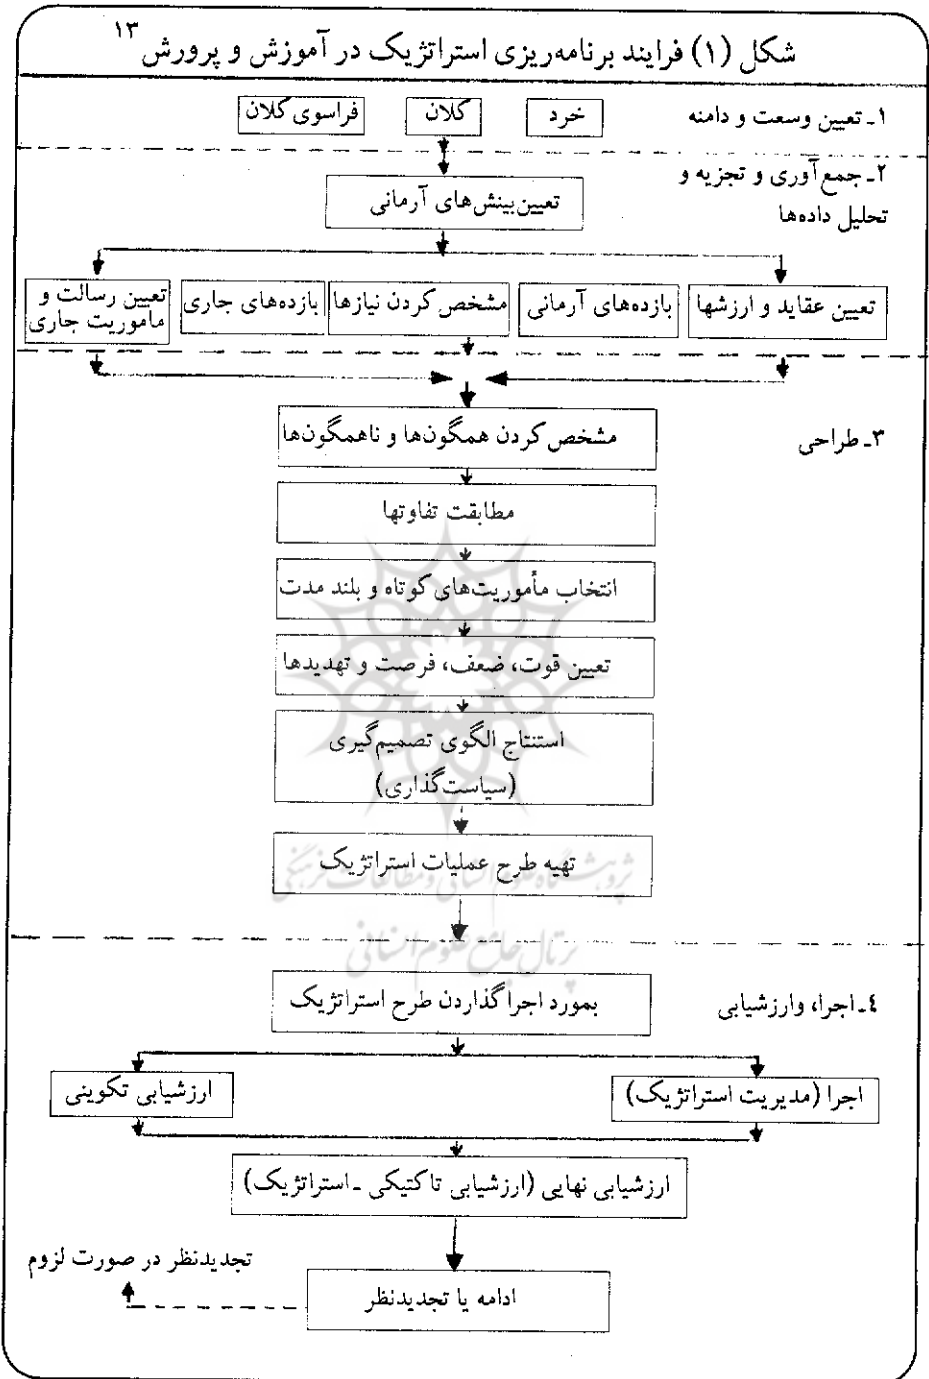 شکل (۱) فرایند برنامه‌ریزی استراتژیک در آموزش و پرورش ۱۳
۱ـ تعیین وسعت و دامنه
خرد
کلان
فراسوی کلان
۲ـ جمع‌آوری و تجزیه و
تحلیل داده‌ها
تعیین‌بینش‌های آرمانی
تعیین عقاید و ارزشها
بازده‌های آرمانی
مشخص کردن نیازها
بازده‌های جاری
تعیین رسالت و
ماموریت جاری
۳ـ طراحی
مشخص کردن همگون‌ها و ناهمگون‌ها
مطابقت تفاوتها
انتخاب مأموریت‌های کوتاه و بلند مدت
تعیین قوت، ضعف، فرصت و تهدیدها
استنتاج الگوی تصمیم‌گیری
(سیاست‌گذاری)
تهیه طرح عملیات استراتژیک
پژوهشگاه علوم انسانی و مطالعات فرهنگی
پرتال جامع علوم انسانی
٤ـ اجرا، وارزشیابی
بمورد اجرا گذاردن طرح استراتژیک
اجرا (مدیریت استراتژیک)
ارزشیابی تکوینی
ارزشیابی نهایی (ارزشیابی تاکتیکی ـ استراتژیک)
تجدیدنظر در صورت لزوم
ادامه یا تجدیدنظر